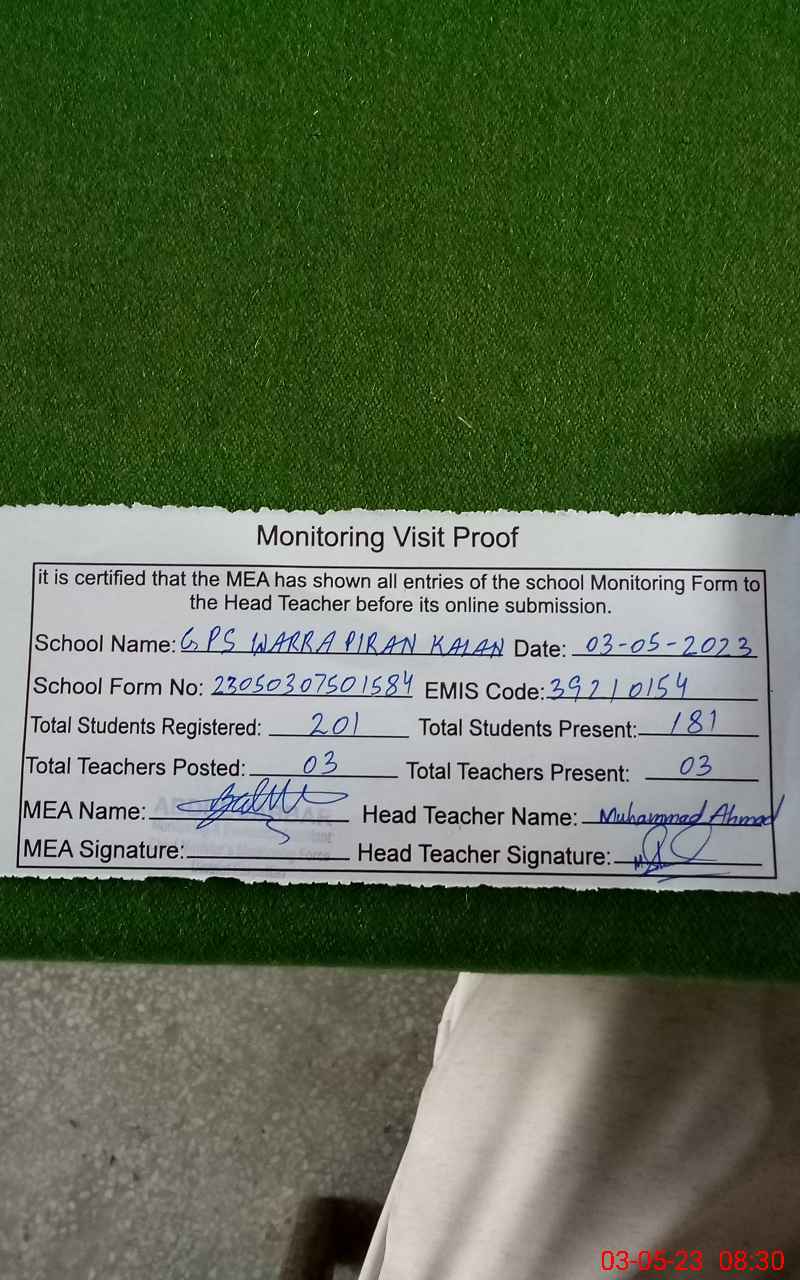 Monitoring Visit Proof
it is certified that the MEA has shown all entries of the school Monitoring Form to
the Head Teacher before its online submission.
School Name: GPS WARRA PIRAN KALAN Date: 03-05-2023
School Form No: 23050307501584 EMIS Code: 39210154
Total Students Registered: 201 Total Students Present: 181
Total Teachers Posted: 03 Total Teachers Present: 03
MEA Name: Head Teacher Name: Muhammad Ahmad
MEA Signature: Head Teacher Signature:
03-05-23 08:30